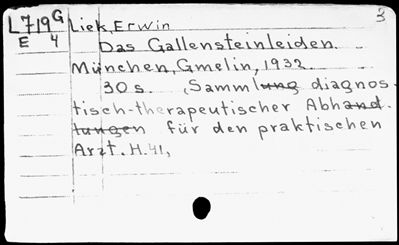 L719G Liek, Erwin 3
E 4 Das Gallensteinleiden.
München, Gmelin, 1932.
30 s. (Sammlung diagnos-
tisch-therapeutischer Abhand-
lungen für den praktischen
Arzt. H.41,